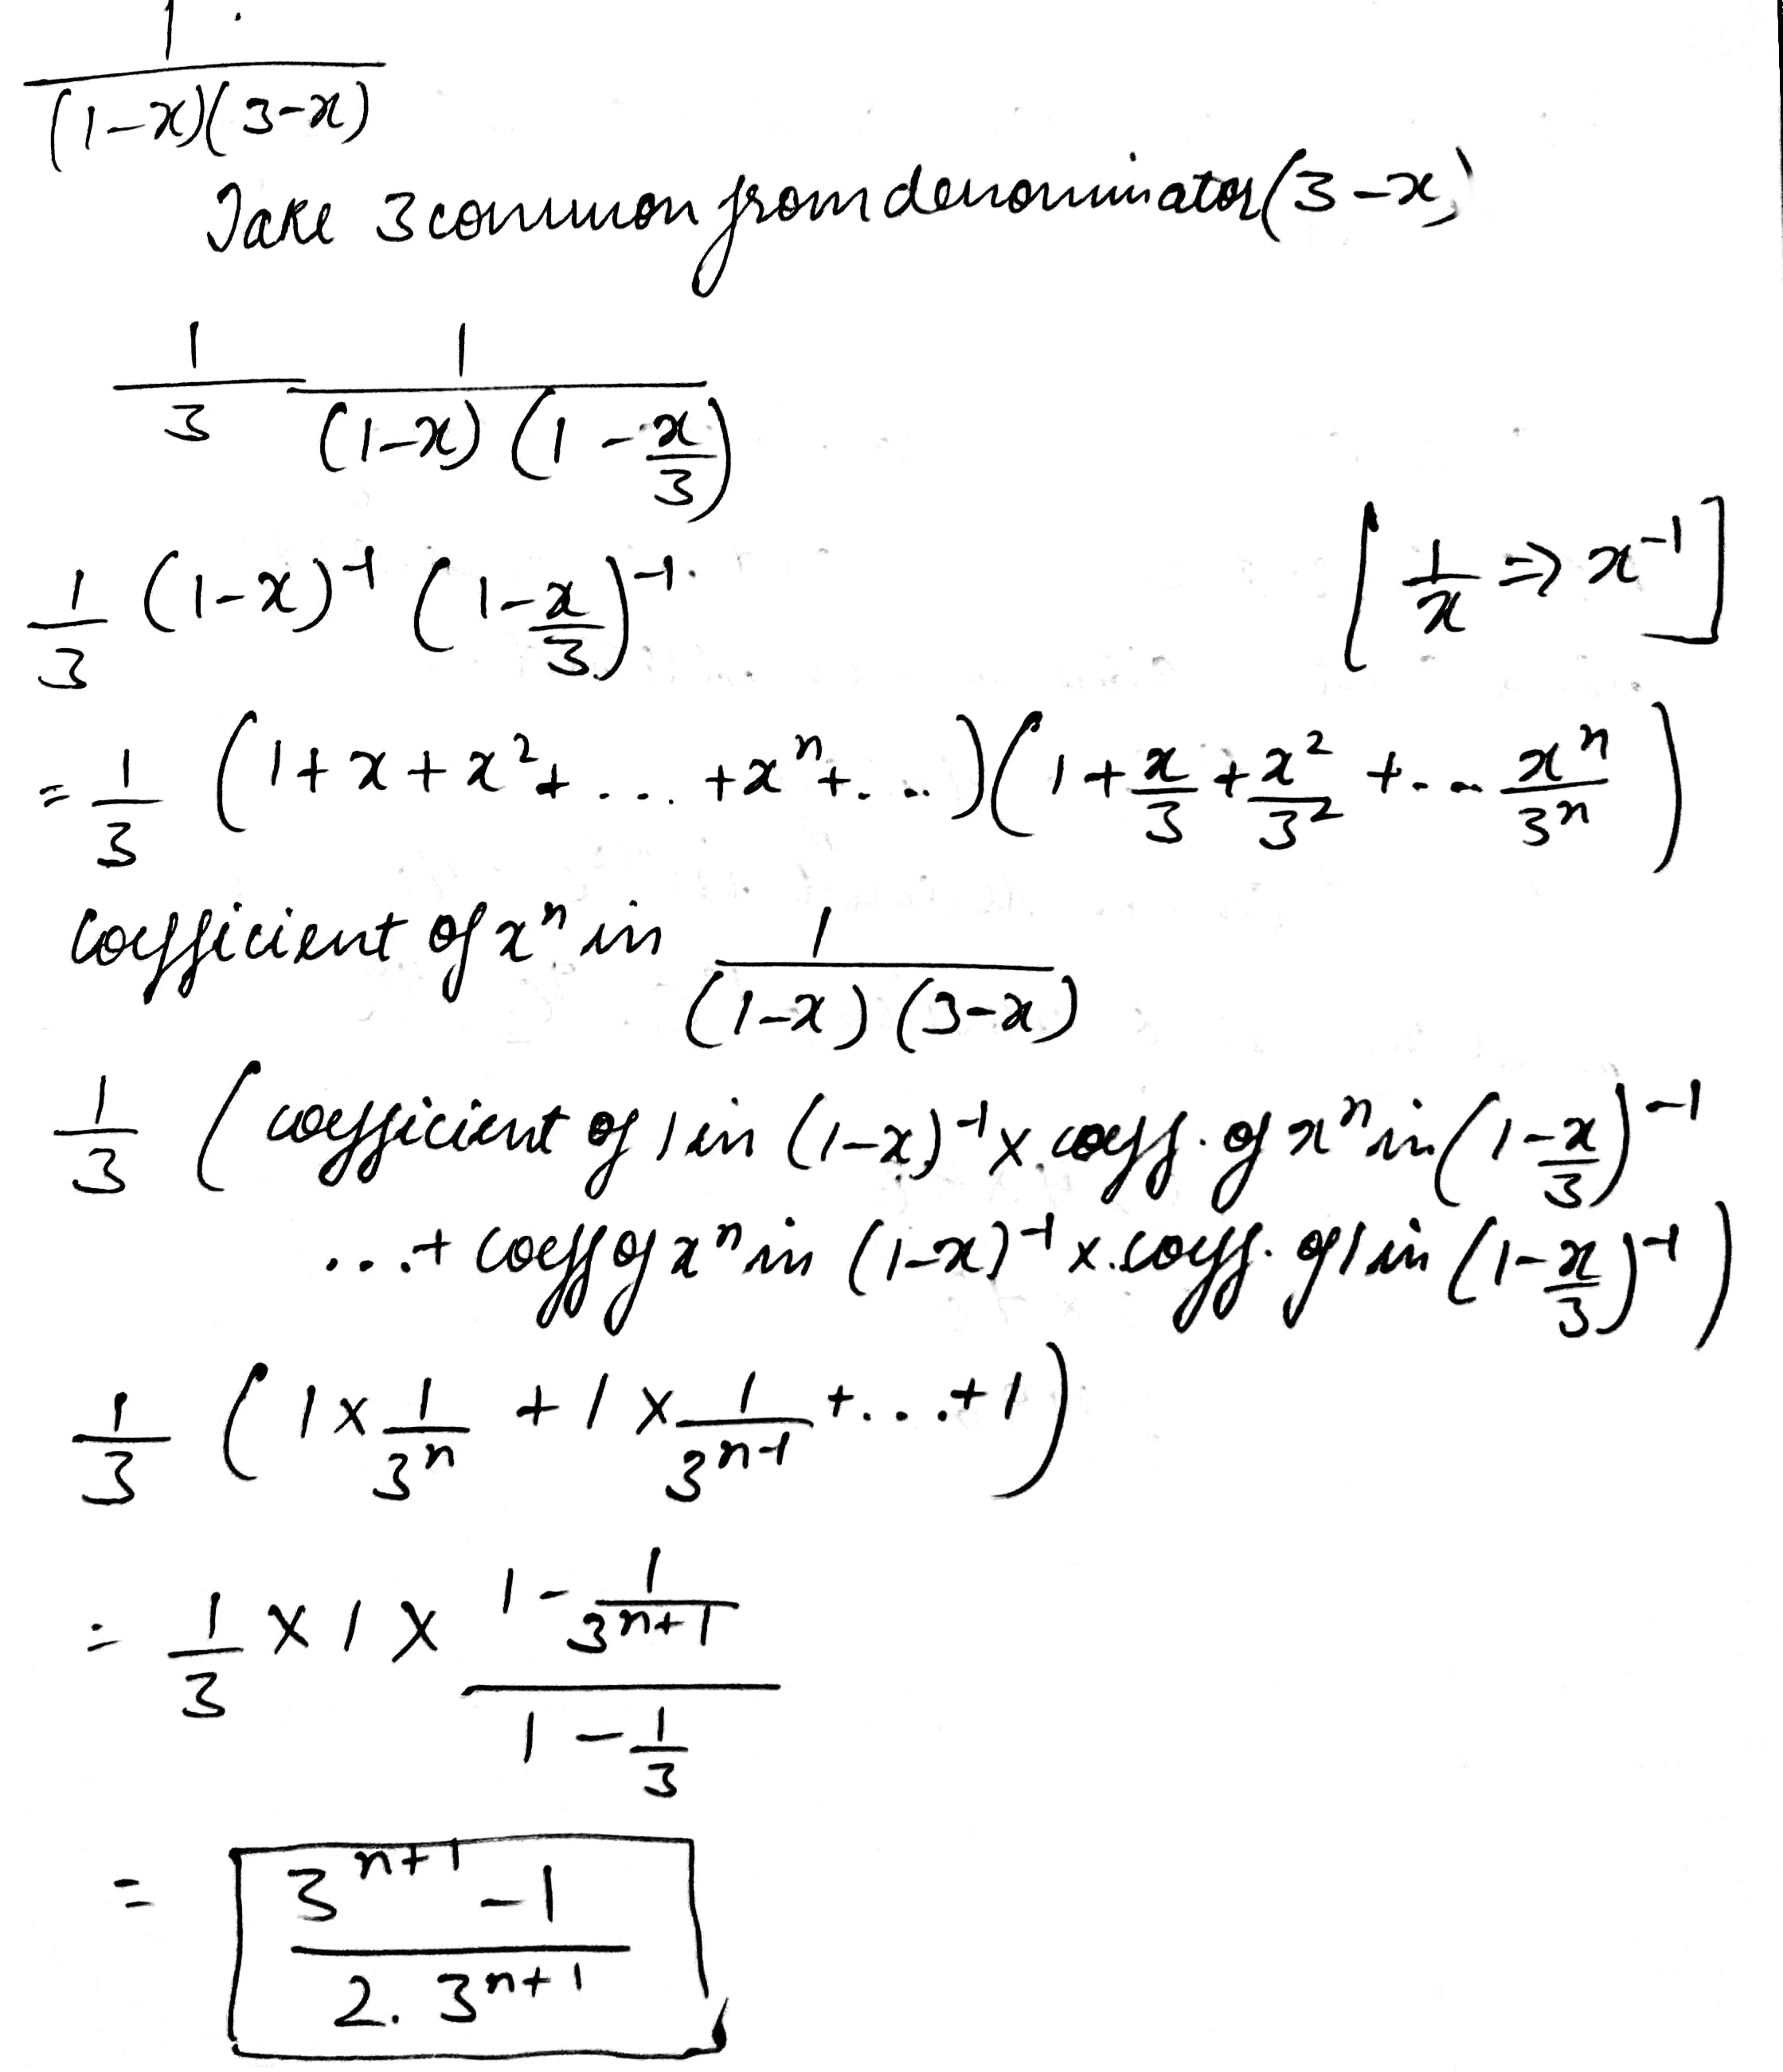 1/((1-x)(3-x))
Take 3 common from denominator (3-x)
1/3 1/((1-x)(1-x/3))
1/3 (1-x)^-1 (1-x/3)^-1 [1/x ⇒ x^-1]
= 1/3 (1+x+x^2+... +x^n+...)(1+x/3+x^2/3^2+...x^n/3^n)
coefficient of x^n in 1/((1-x)(3-x))
1/3 (coefficient of 1 in (1-x)^-1 × coeff. of x^n in (1-x/3)^-1
...+ coeff of x^n in (1-x)^-1 × coeff. of 1 in (1-x/3)^-1)
1/3 (1×1/3^n + 1×1/3^(n-1) +...+1)
= 1/3 × 1 × (1-1/3^(n+1))/(1-1/3)
= (3^(n+1) -1)/(2. 3^(n+1))